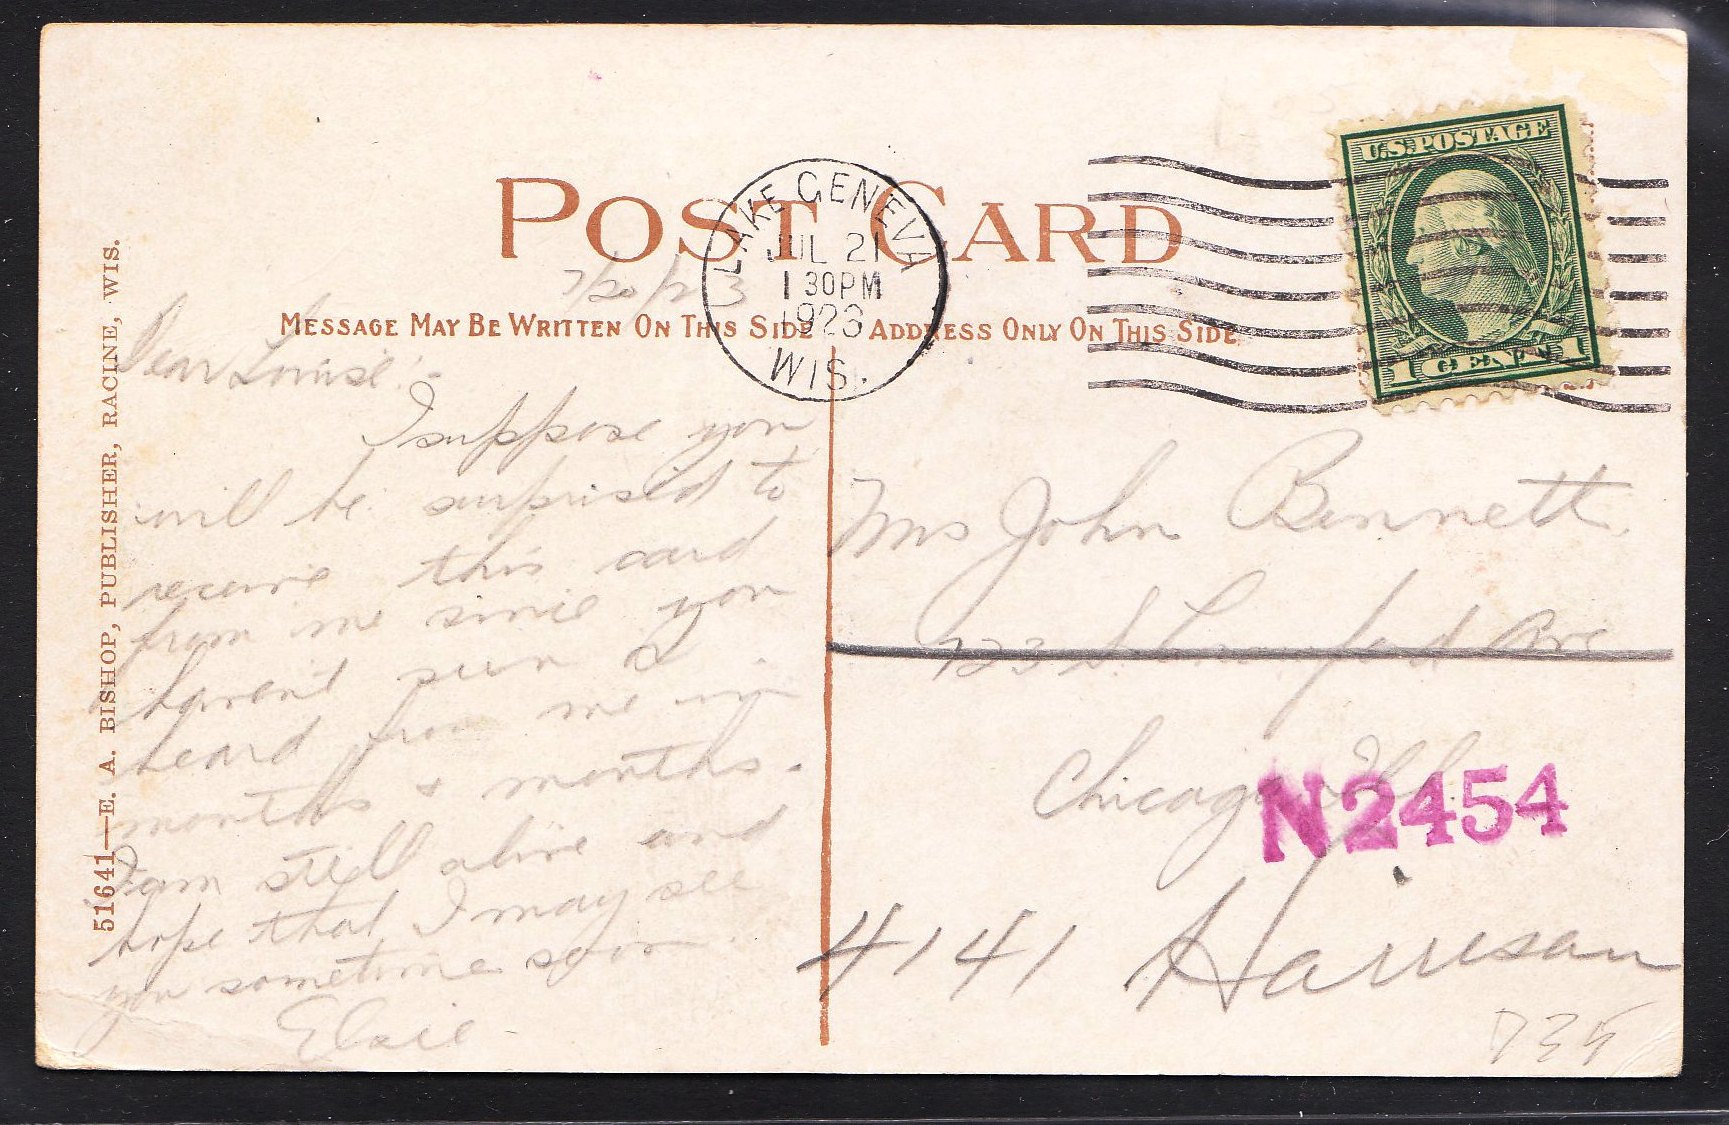 POST CARD
LAKE GENEVA
JUL 21
1 30PM
1923
WIS.
U.S. POSTAGE
1 CENT 1
7/20/23
MESSAGE MAY BE WRITTEN ON THIS SIDE
ADDRESS ONLY ON THIS SIDE
51641—E. A. BISHOP, PUBLISHER, RACINE, WIS.
Dear Louise:-
I suppose you
will be surprised to
receive this card
from me since you
havent seen or
heard from me in
months & months.
I am still alive and
hope that I may see
you sometime soon.
Elsie
Mrs John Bennett
Ave
Chicago Ill
N2454
4141 Harrison